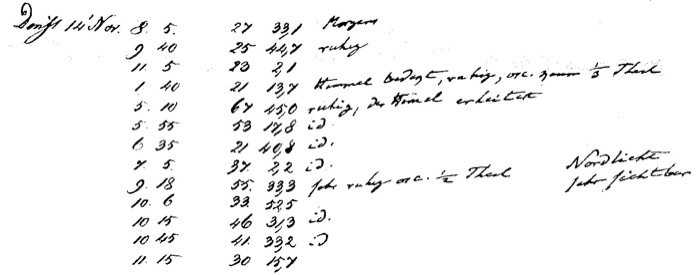 Donst 14 Nov. 8. 5. 27 33,1 Morgens
9 40 25 44,7 ruhig
11. 5 23 2,1
1. 40 21 13,7 Himmel bedegt, ruhig, osc. zum 1/3 Theil
5. 10 67 45,0 ruhig, der Himel erheitert
5. 55 53 17,8 id.
6 35 21 40,8 id.
7. 5. 37. 2,2 id.
9. 18 55. 33,3 sehr ruhig osc. 1/2 Theil Nordlicht
10. 6 33. 52,5 sehr sichtbar
10 15 46 31,3 id.
10 45 41. 33,2 id
11. 15 30 15,7